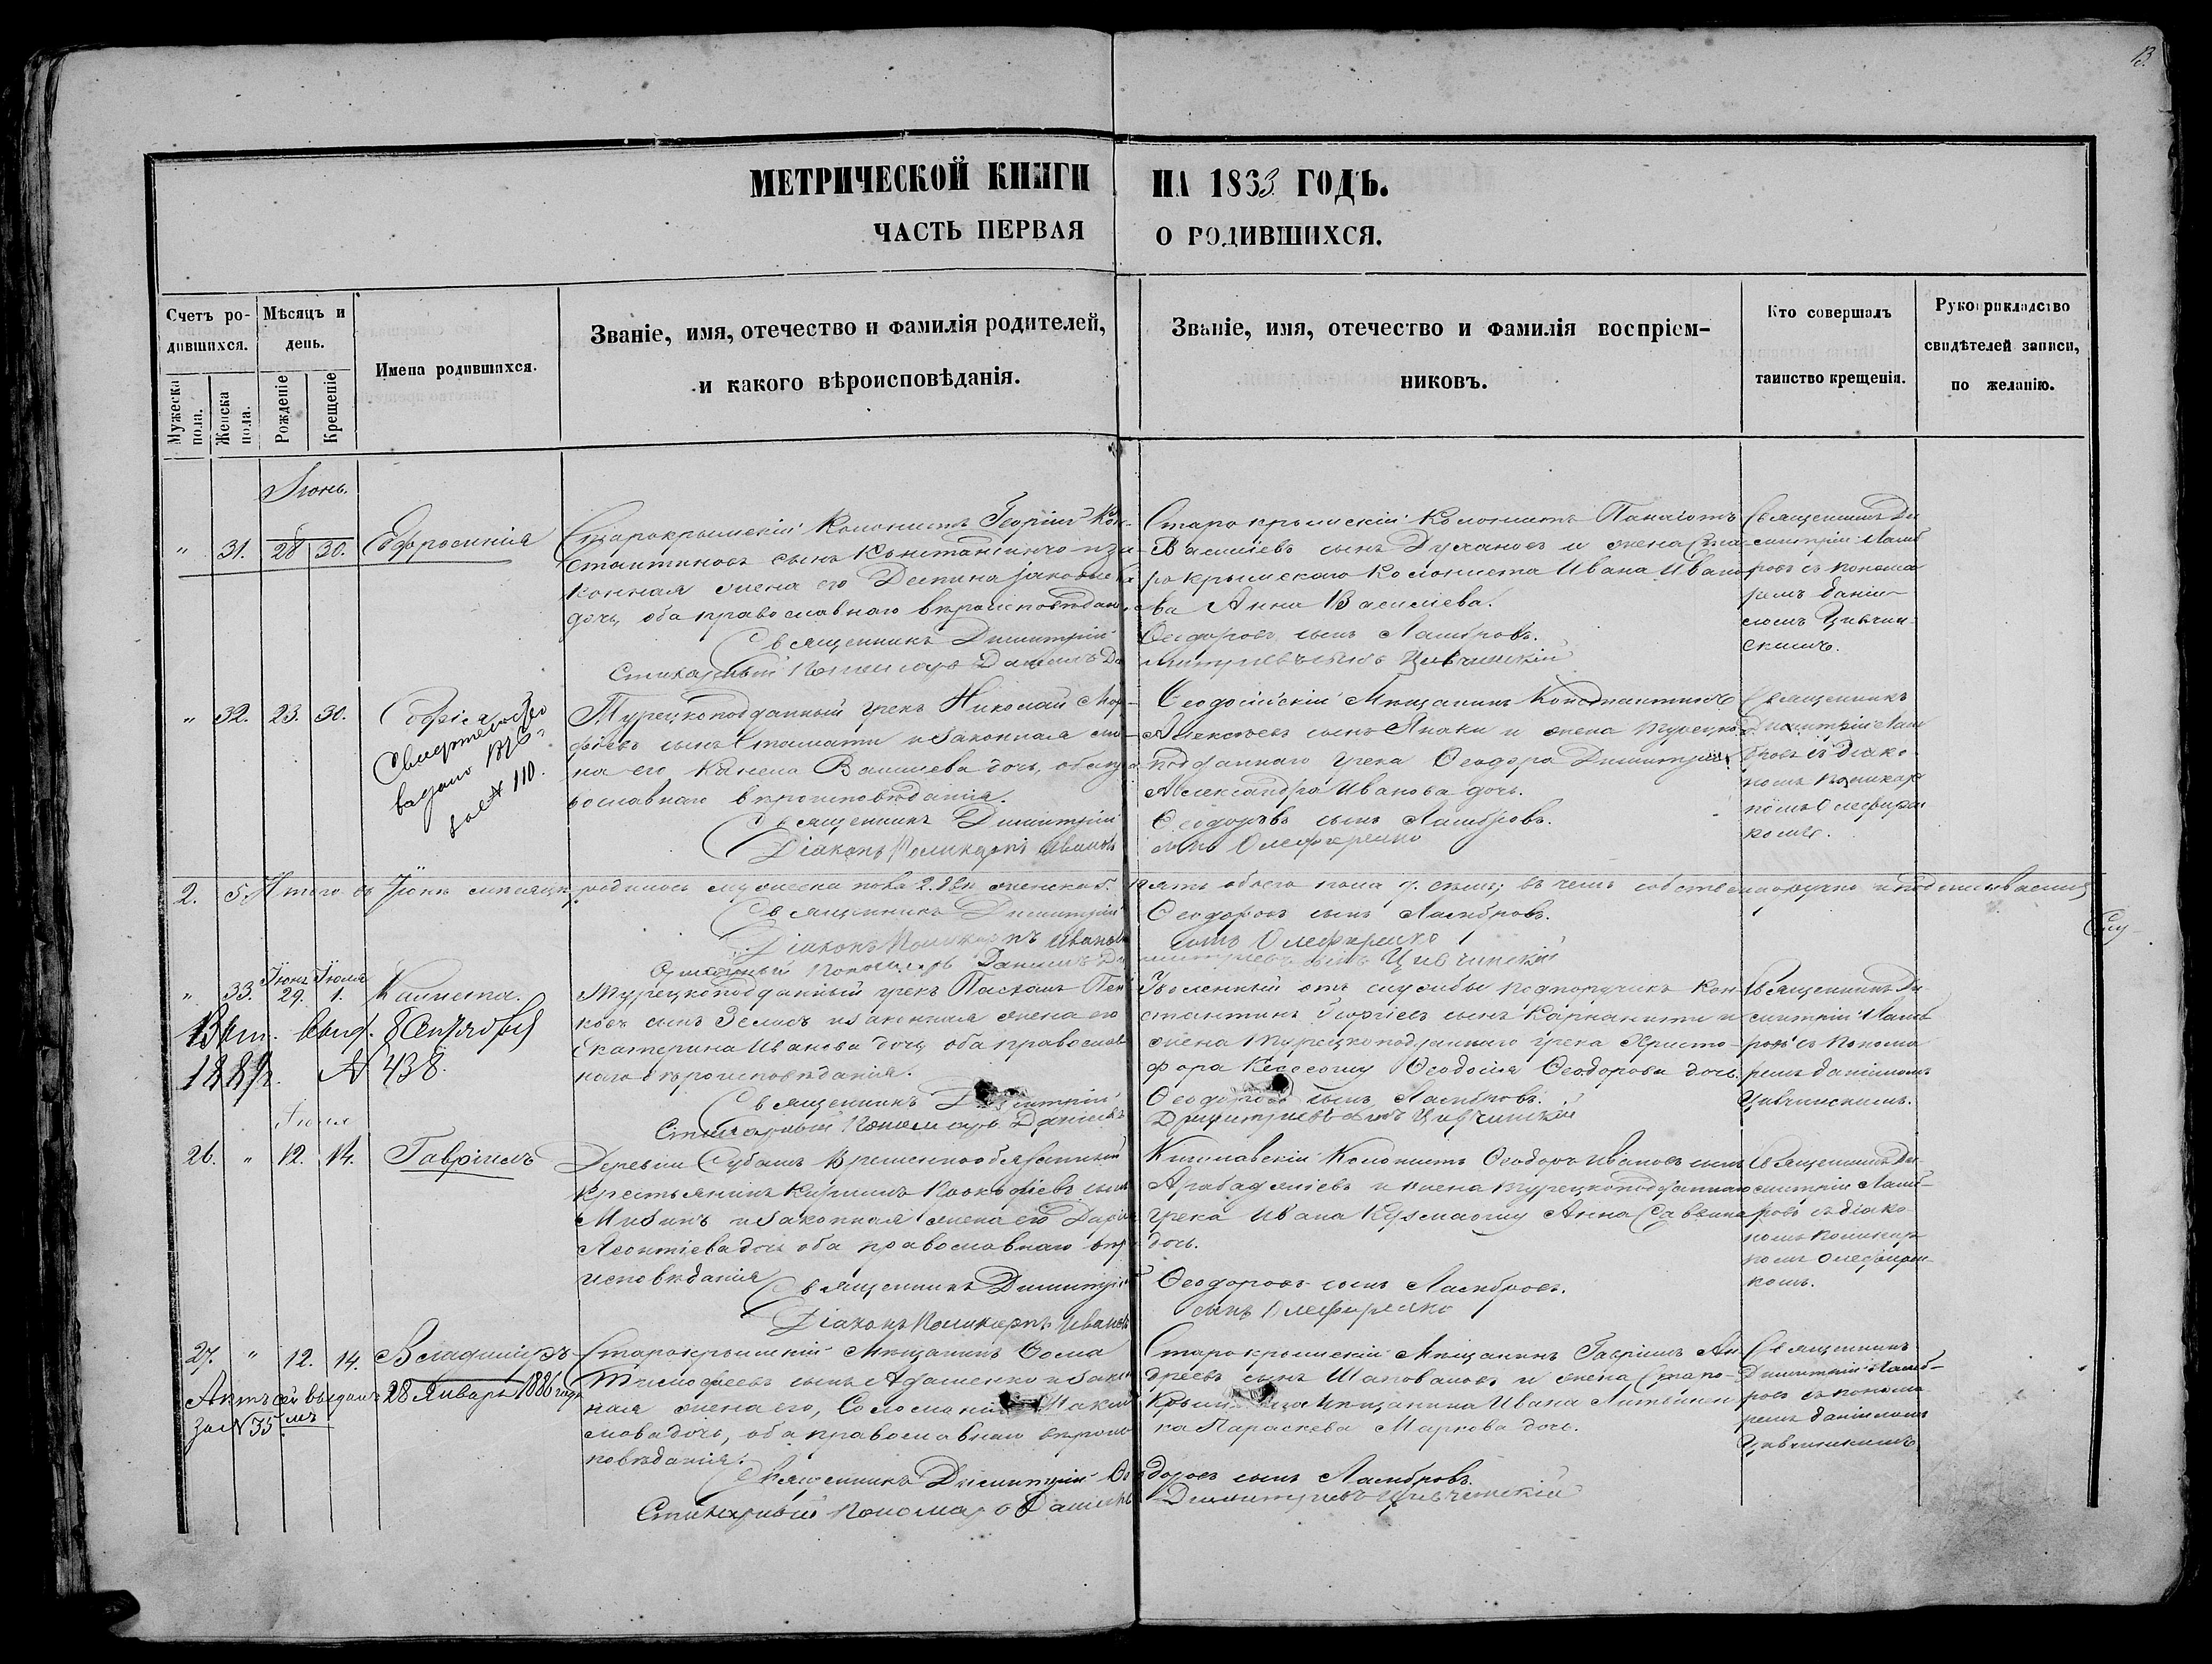 13.
МЕТРИЧЕСКОЙ КНИГИ НА 1863 ГОДЪ.
ЧАСТЬ ПЕРВАЯ О РОДИВШИХСЯ.
Счетъ ро-
дившихся.
Мужеска пола.
Женска пола.
Мѣсяцъ и
день.
Рожденіе
Крещеніе
Имена родившихся.
Званіе, имя, отечество и фамилія родителей,
и какого вѣроисповѣданія.
Званіе, имя, отечество и фамилія воспріем-
никовъ.
Кто совершалъ
таинство крещенія.
Рукоприкладство
свидѣтелей записи,
по желанію.
Іюнь.
" 31. 28 30. Ефросинія
Старокрымскій колонистъ Георгій Кон-
стантиновъ сынъ и за-
конная жена его Деспина
дочь, оба православнаго вѣроисповѣдан.
Священникъ Димитрій
Стихарный Пономарь Даніилъ Ди
Старокрымскій Колонистъ Панаіотъ
Василіевъ сынъ и жена Ста-
рокрымскаго Колониста Ивана Ивано
ва Анна Василіева.
Ѳеодоровъ сынъ Ламбровъ.
митріевъ сынъ Цивчинскій
Священникъ Ди
митрій Ламб
ровъ съ понома
ремъ Даніи
ломъ Цивчин
скимъ.
" 32. 23. 30. Софія
Свидѣтельство
выдано
за № 110.
Турецкоподданный грекъ Николай
сынъ Стамати и законная же-
на его Василіева дочь, оба пра
вославнаго вѣроисповѣданія.
Священникъ Димитрій
Діаконъ Поликарпъ Ивановъ
Ѳеодосійскій Мѣщанинъ Константинъ
Алексѣевъ сынъ и жена Турецко
подданнаго грека Ѳеодора
Александра Иванова дочь.
Ѳеодоровъ сынъ Ламбровъ.
сынъ Олефиренко
Священникъ
Димитрій Лам
бровъ съ діако
номъ Поликар
помъ Олефирен
комъ.
2. 5. Итого въ Іюнѣ мѣсяцѣ родилось мужеска пола 2. два женска 5. пять обоего пола 7. семь; въ чемъ собственноручно и подписываемся
Священникъ Димитрій Ѳеодоровъ сынъ Ламбровъ.
Діаконъ Поликарпъ Ивановъ сынъ Олефиренко
Стихарный Пономарь Даніилъ Димитріевъ сынъ Цивчинскій
" 33. Іюнь 29. Іюля 1. Калиста.
выд. 8 Сентября
№ 438.
Турецкоподданный грекъ Пасхалъ
сынъ и законная жена его
Екатерина Иванова дочь оба православ
наго вѣроисповѣданія.
Священникъ Димитрій
Стихарный Пономарь Даніилъ
Уволенный отъ службы подпоручикъ Кон-
стантинъ Георгіевъ сынъ и
жена Турецкоподданнаго грека Христо-
фора Ѳеодосія Ѳеодорова дочь.
Ѳеодоровъ сынъ Ламбровъ.
Димитріевъ сынъ Цивчинскій
Священникъ Ди
митрій Ламб
ровъ съ понома
ремъ Даніиломъ
Цивчинскимъ.
Іюля
26. " 12. 14. Гавріилъ
Деревни Субашъ Временнообязанный
Крестьянинъ Кириллъ Прокофіевъ сынъ
и законная жена его Дарія
Леонтіева дочь оба православнаго вѣро
исповѣданія
Священникъ Димитрій
Діаконъ Поликарпъ Ивановъ
Колонистъ Ѳеодоръ Ивановъ сынъ
и жена турецкоподданнаго
грека Ивана Анна Саввина
дочь.
Ѳеодоровъ сынъ Ламбровъ.
сынъ Олефиренко
Священникъ Ди
митрій Ламб-
ровъ съ діако
номъ Поликар
помъ Олефирен
комъ.
27. " 12. 14. Владиміръ
Актъ сей выданъ 28 Января 1886 года
за № 35
Старокрымскій Мѣщанинъ Ѳома
Тимофеевъ сынъ Адаменко и закон
ная жена его, Соломонія Макси
мова дочь, оба православнаго вѣроис
повѣданія.
Священникъ Димитрій Ѳео
Стихарный Пономарь Даніилъ
Старокрымскій Мѣщанинъ Гавріилъ Ан-
дреевъ сынъ Шаповаловъ и жена Старо-
Мѣщанина Ивана Литвинен
ка Параскева Маркова дочь.
доровъ сынъ Ламбровъ.
Димитріевъ Цивчинскій
Священникъ
Димитрій Ламб-
ровъ съ понома
ремъ Даніиломъ
Цивчинскимъ